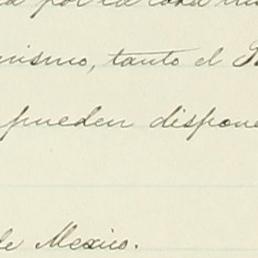 por la casa
mismo, tanto el
pueden dispone
de Mexico.